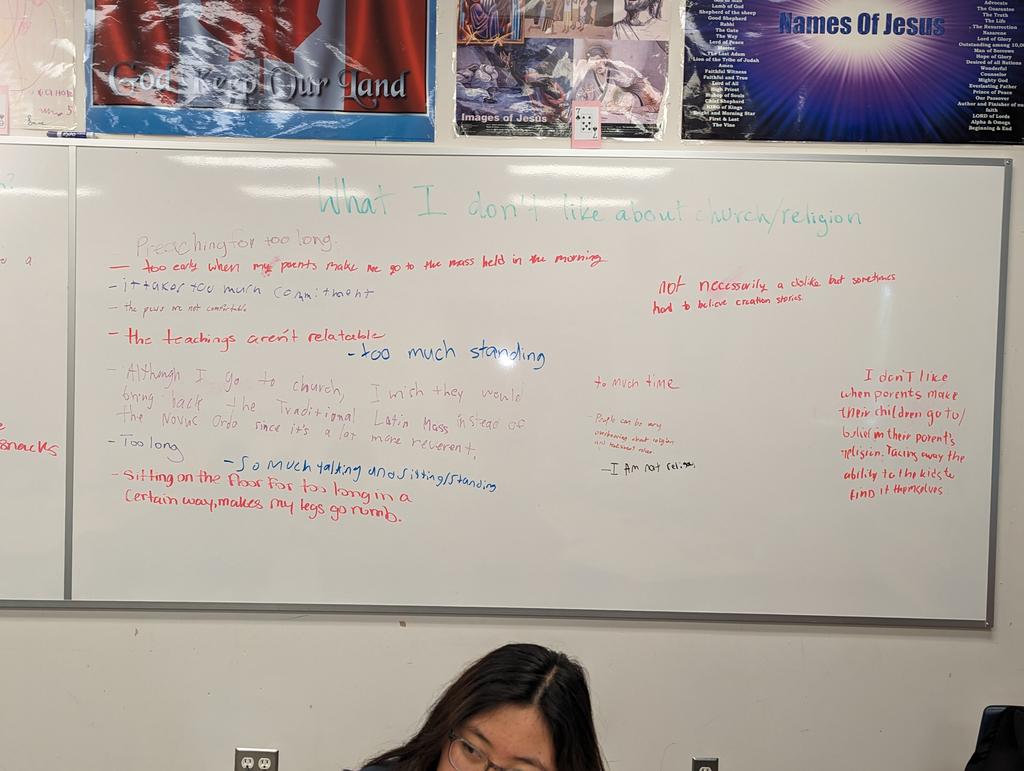 God Keep Our Land
Images of Jesus
Names Of Jesus
Lamb of God
Shepherd of the sheep
Good Shepherd
Rabbi
The Gate
The Way
Lord of Peace
Master
The Last Adam
Lion of the Tribe of Judah
Amen
Faithful Witness
Faithful and True
Lord of All
High Priest
Bishop of Souls
Chief Shepherd
KING of Kings
Bright and Morning Star
First & Last
The Vine
Advocate
The Guarantee
The Truth
The Life
The Resurrection
Nazarene
Lord of Glory
Outstanding among 10,0
Man of Sorrows
Hope of Glory
Desired of all Nations
Wonderful
Counselor
Mighty God
Everlasting Father
Prince of Peace
Our Passover
Author and Finisher of ou
faith
LORD of Lords
Alpha & Omega
Beginning & End
What I don't like about church/religion
Preaching for too long.
— too early when my parents make me go to the mass held in the morning
- it takes too much commitment
- the pews are not comfortable
- the teachings aren't relatable
- too much standing
- Although I go to church, I wish they would
bring back the Traditional Latin Mass instead of
the Novus Ordo since it's a lot more reverent.
- Too long
- So much talking and sitting/standing
- Sitting on the floor for too long in a
certain way, makes my legs go numb.
not necessarily a dislike but sometimes
hard to believe creation stories.
to much time
- People can be very
overbearing about religion
and
- I Am not
I don't like
when parents make
their children go to/
belief in their parent's
religion. Taking away the
ability to the kids to
find it themselves
snacks